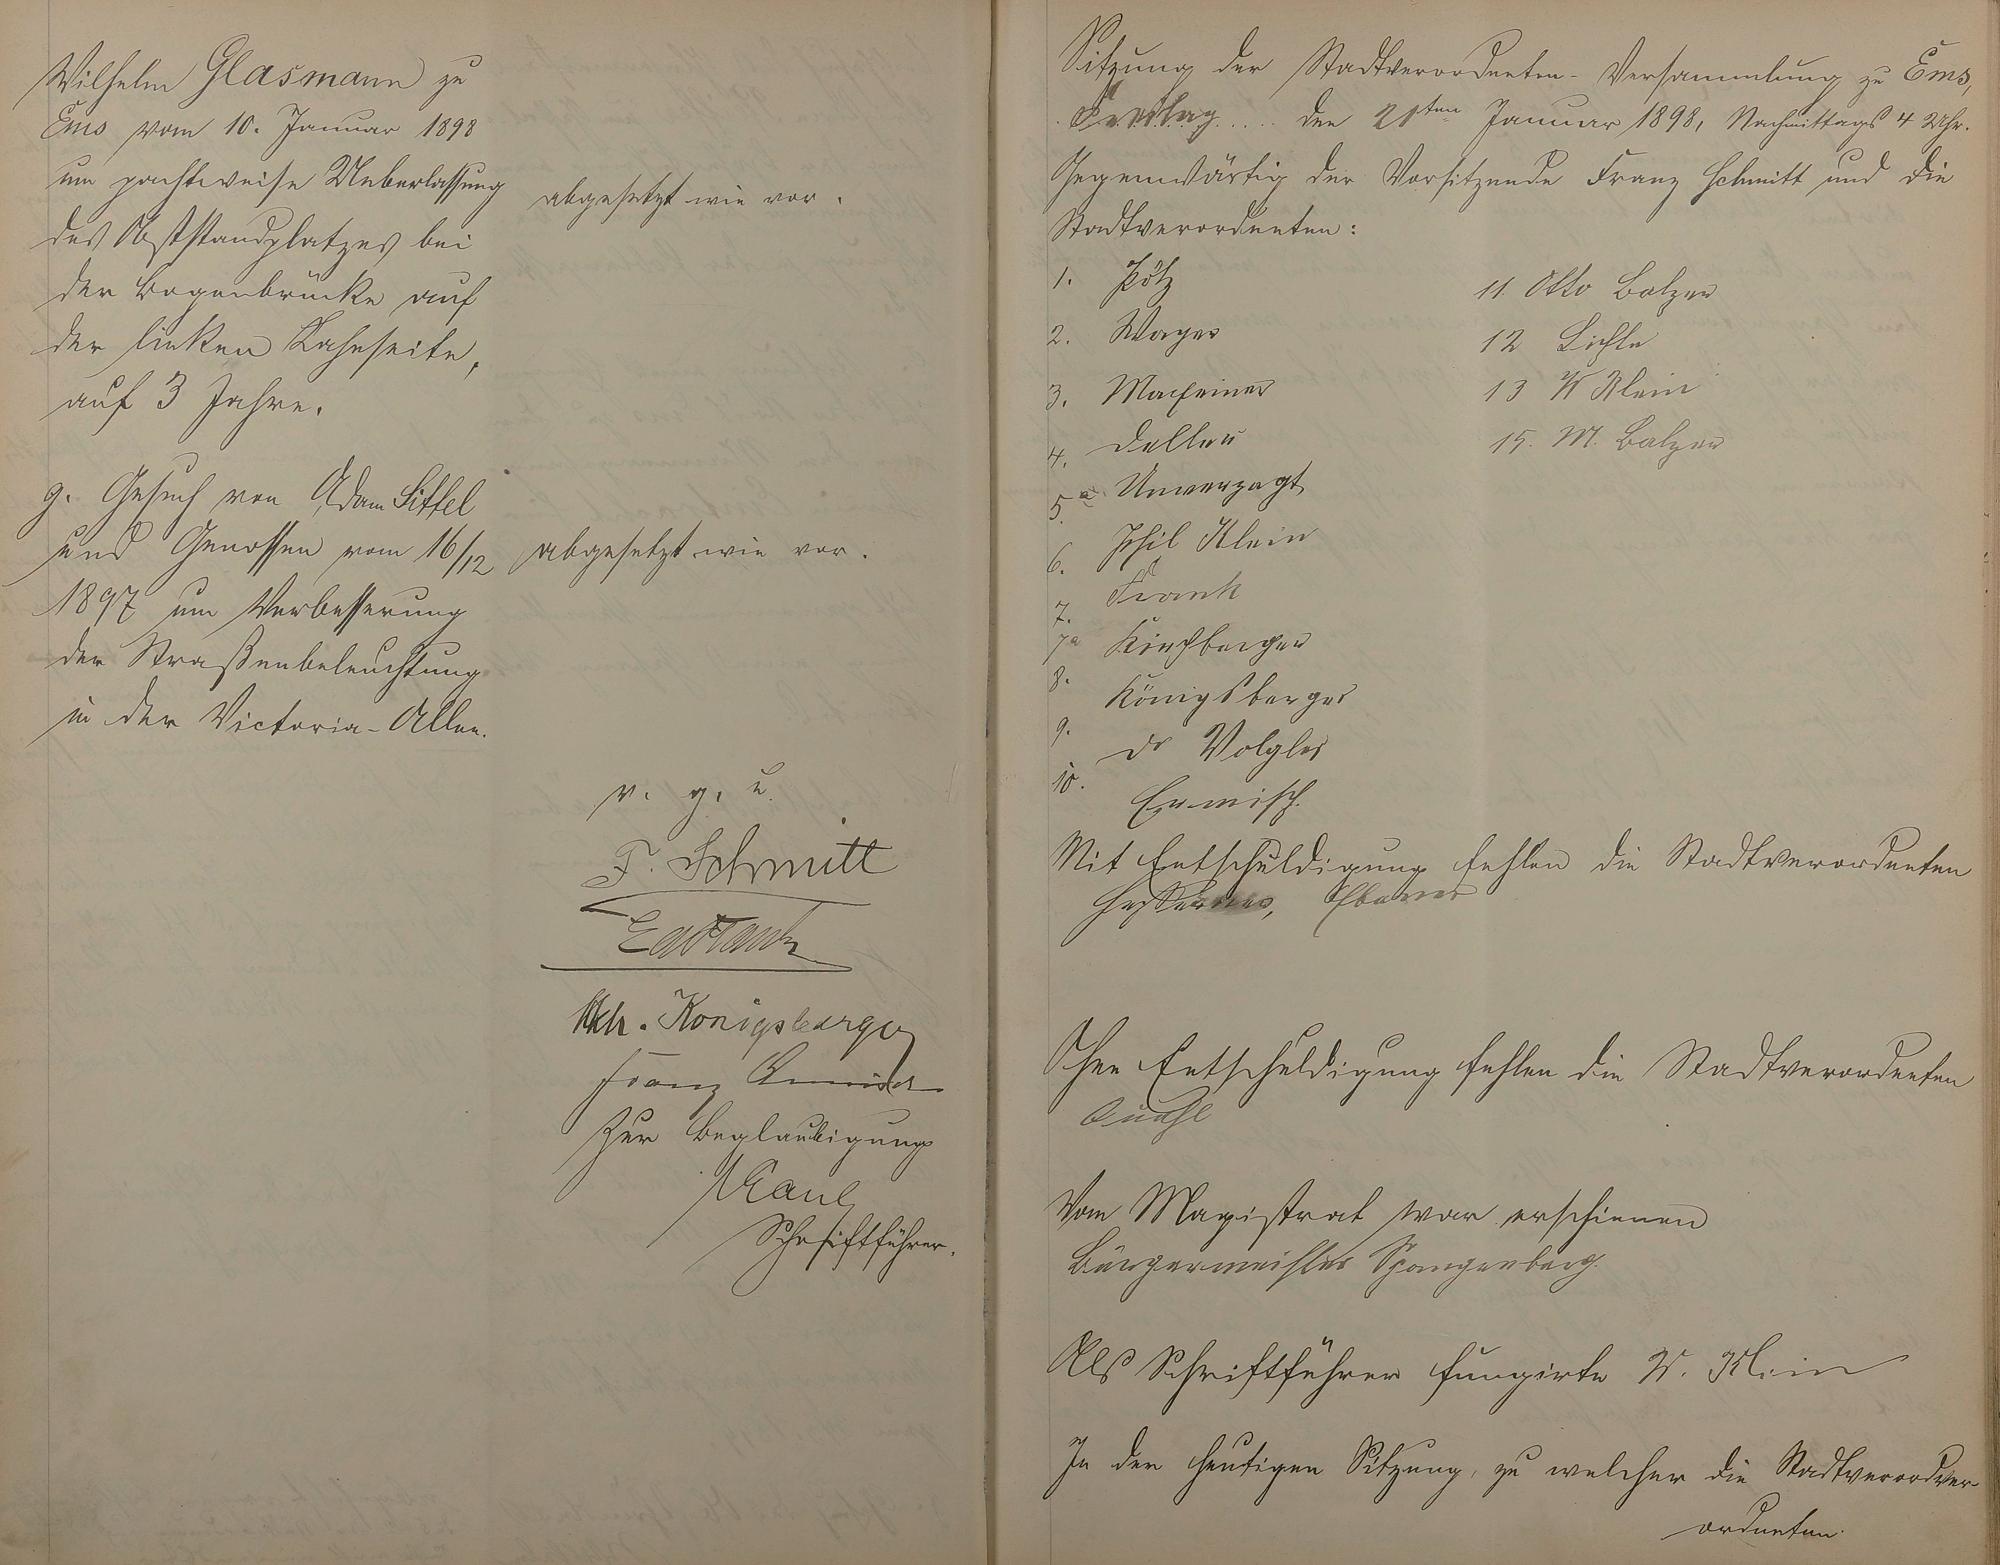 Wilhelm Glasmann zu
Ems vom 10. Januar 1898
um pachtweise Ueberlassung
des Obststandplatzes bei
der Bogenbrücke auf
der linken Lahnseite,
auf 3 Jahre.
abgesetzt wie vor.
g. Gesuch von Adam Sittel
und Genossen vom 16/12
1897 um Verbesserung
der Straßenbeleuchtung
in der Victoria-Allee.
abgesetzt wie vor.
v. g. u.
F. Schmitt
Königsberger
Franz Ermisch
Zur Beglaubigung
Schriftführer.
Sitzung der Stadtverordneten-Versammlung zu Ems,
Freitag den 21ten Januar 1898, Nachmittags 4 Uhr.
Gegenwärtig der Vorsitzende Franz Schmitt und die
Stadtverordneten:
1. Pötz
2. Wager
3.
4.
5.a Unverzagt
6. Phil Klein
7. Frank
7a Kirchberger
8. Königsberger
9. Dr
10. Ermisch
11. Otto Balzer
12
13 W Klein
15. M. Balzer
Mit Entschuldigung fehlen die Stadtverordneten
Ohne Entschuldigung fehlen die Stadtverordneten
Vom Magistrat war erschienen
Bürgermeister Spangenberg.
Als Schriftführer fungirte W. Klein
In der heutigen Sitzung, zu welcher die Stadtverordver-
ordneten